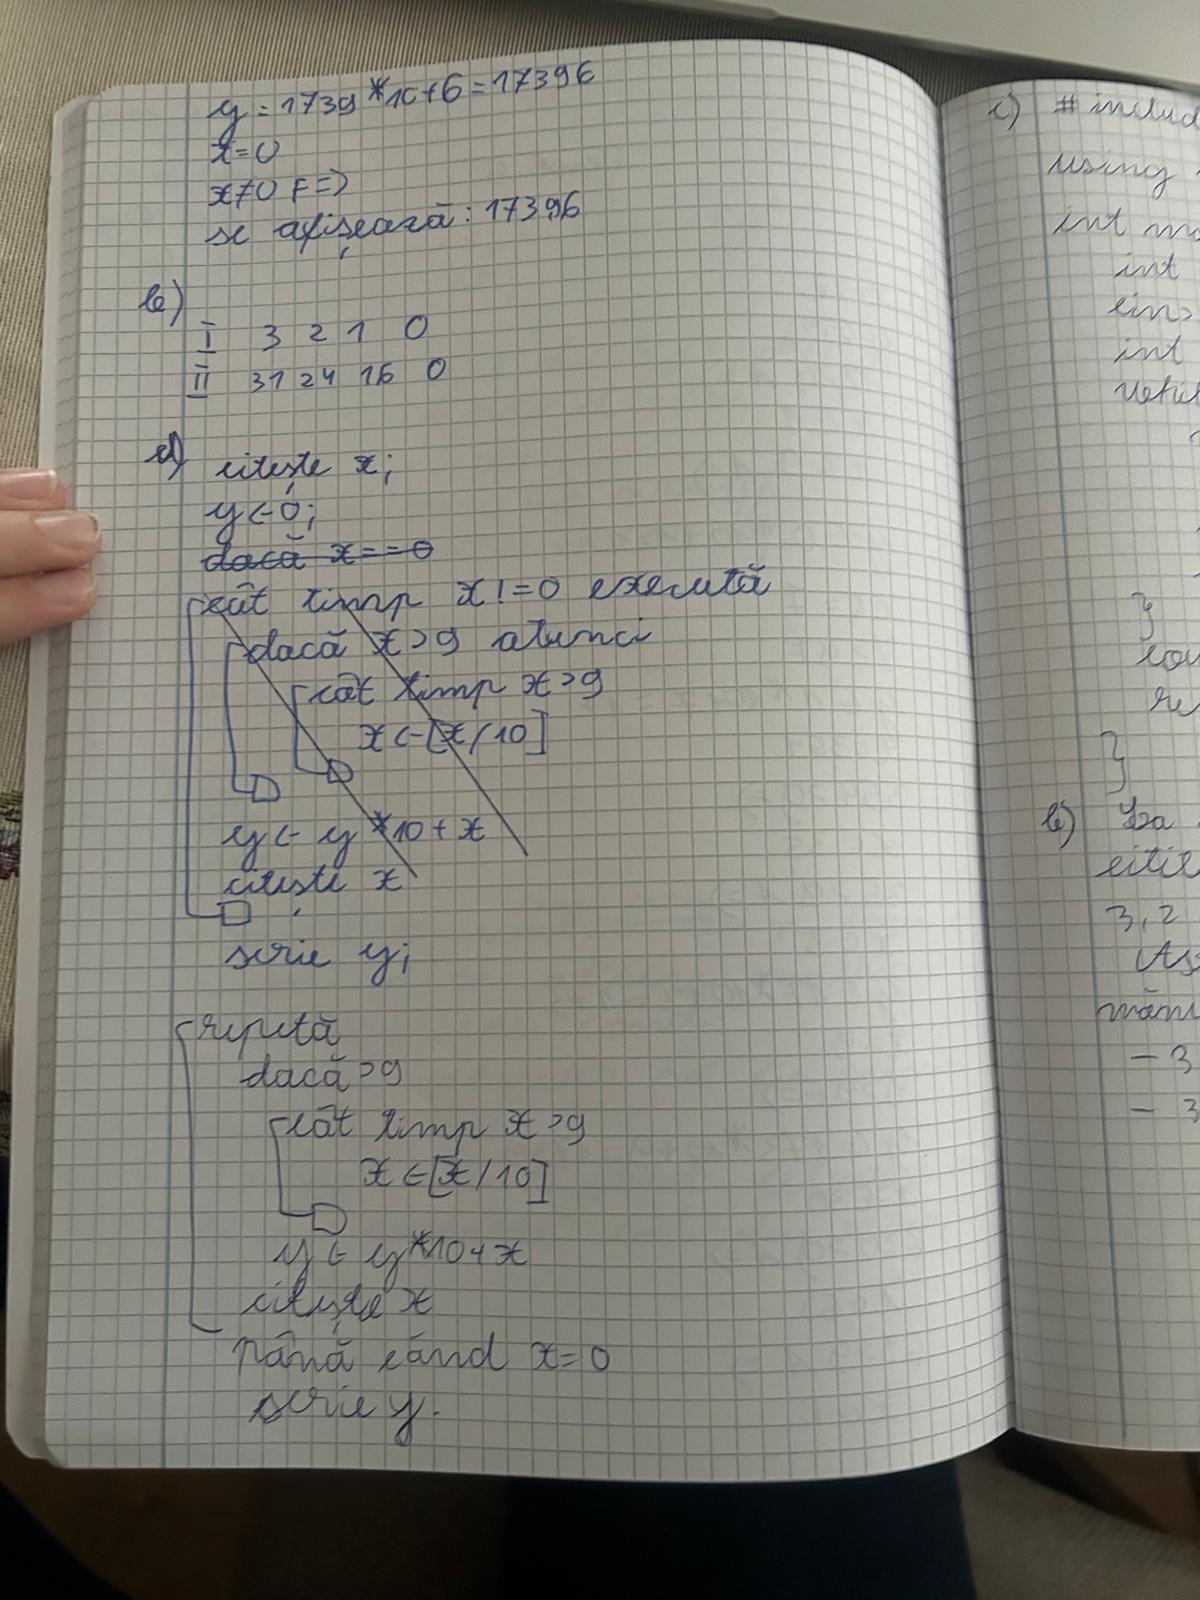 y = 1739 * 10 + 6 = 17396
x = 0
x≠0 F =>
se afișează: 17396
b)
I 3 2 1 0
II 31 24 16 0
d) citește x;
y ← 0;
dacă x == 0
cât timp x != 0 execută
dacă x > 9 atunci
cât timp x > 9
x ← [x/10]
y ← y * 10 + x
citește x
scrie y;
repetă
dacă > 9
cât timp x > 9
x ← [x/10]
y ← y * 10 + x
citește x
până când x = 0
scrie y.
c) # includ
using
int ma
int
cin>
int
}
cou
re
}
b) La
citit
3, 2
As
mâni
- 3
- 3